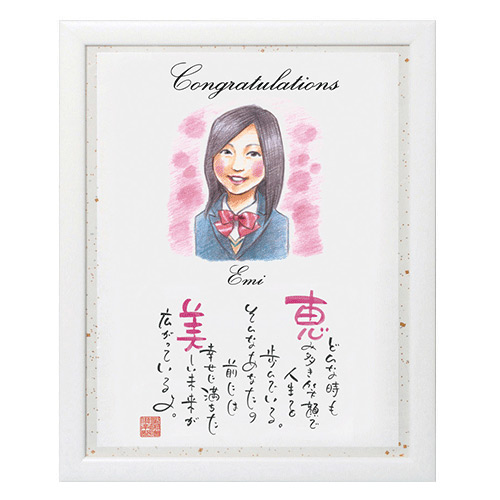 Congratulations
Emi
どんな時も
恵み多き笑顔で
人生を
歩んでいる。
そんなあなたの
前には
幸せに満ちた
美しい未来が
広がっている